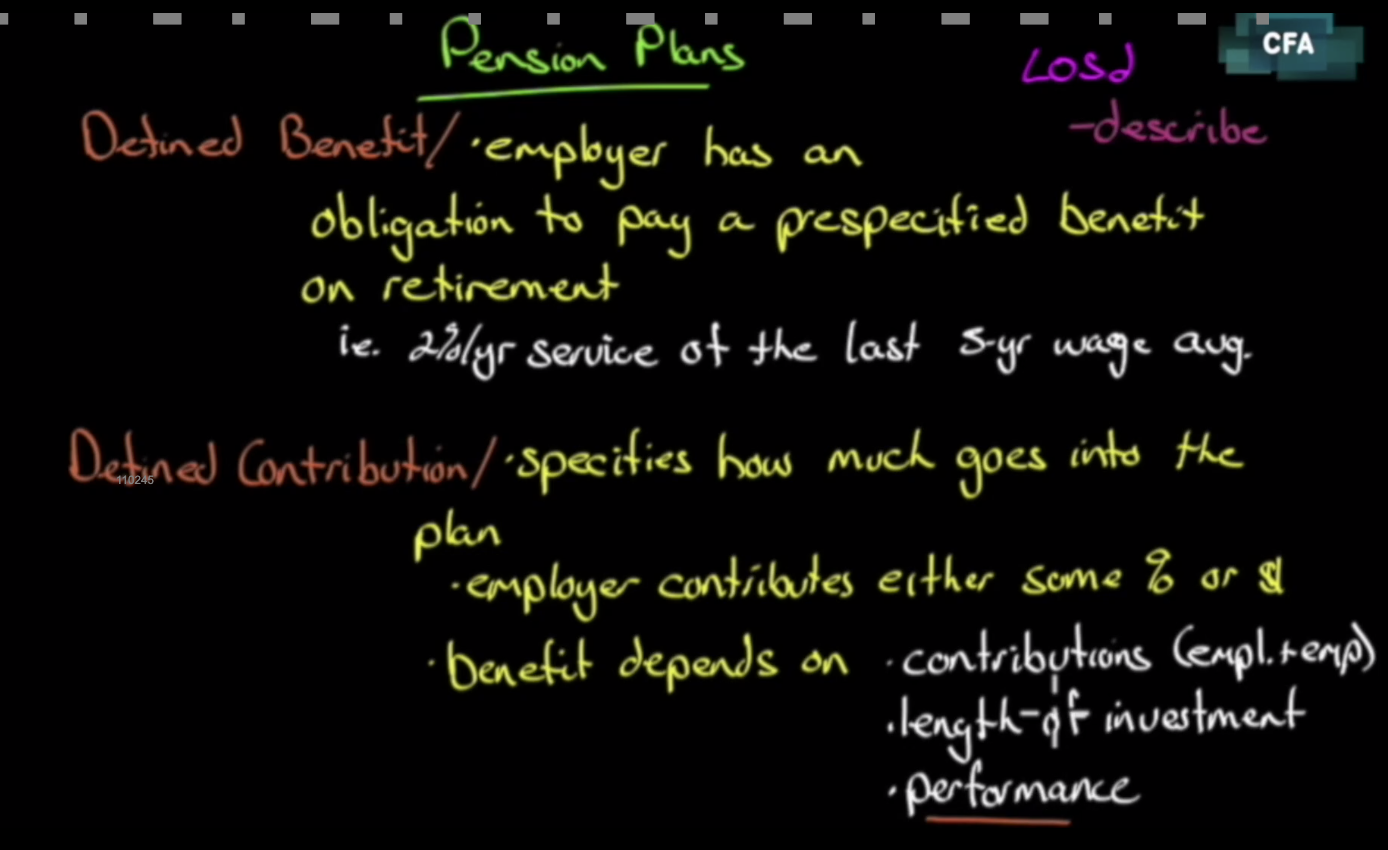 Pension Plans
LOS d
CFA
- describe
Defined Benefit/ · employer has an
obligation to pay a prespecified benefit
on retirement
i.e. 2%/yr service of the last 5-yr wage avg.
Defined Contribution/ · specifies how much goes into the
110245
plan
· employer contributes either some % or $
· benefit depends on · contributions (empl. + emp)
· length-of investment
· performance